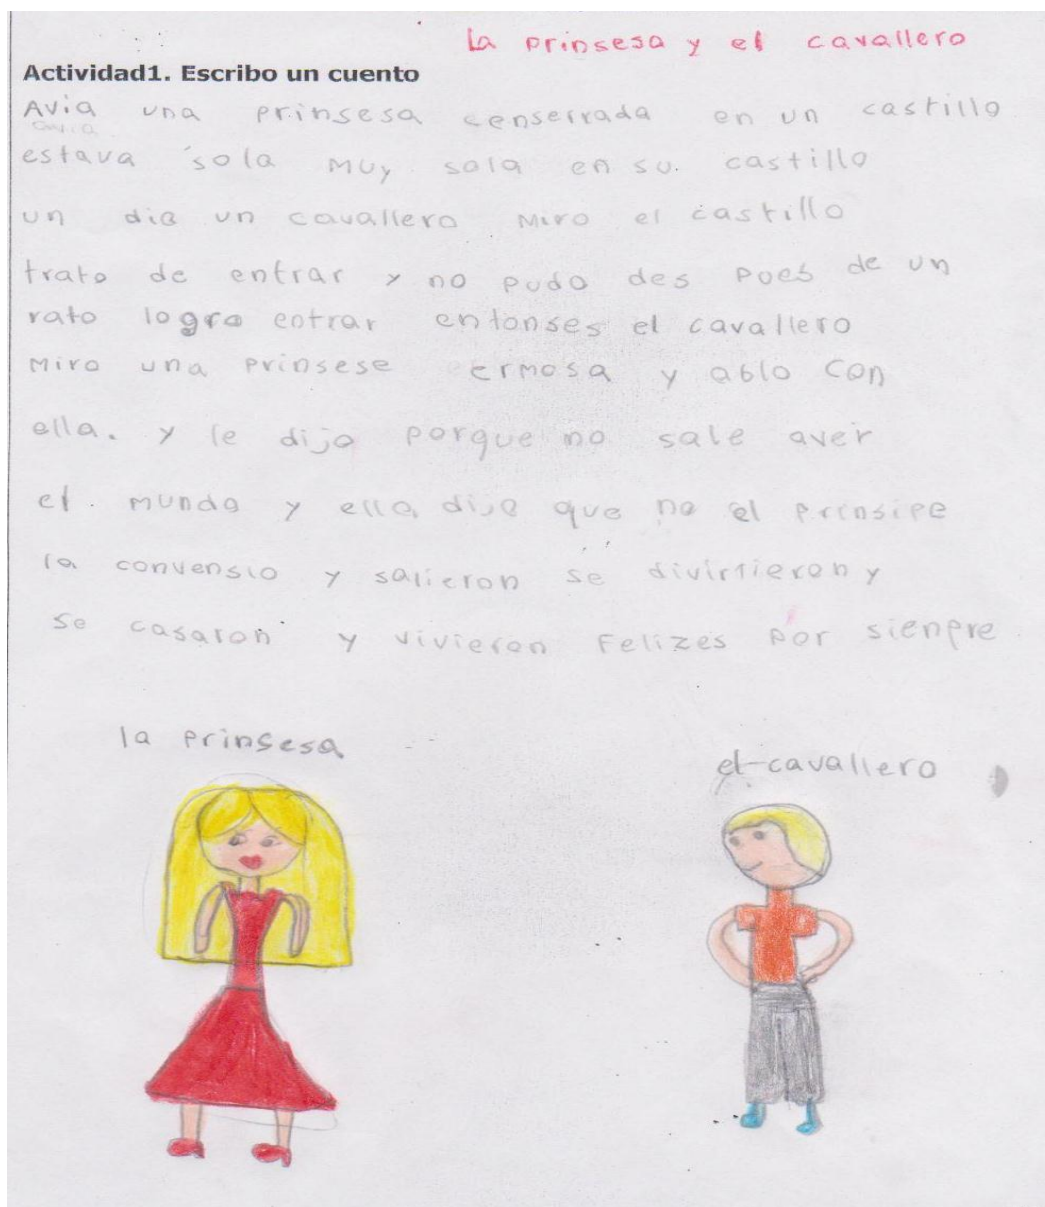 La prinsesa y el cavallero
Actividad1. Escribo un cuento
Avia una prinsesa censerrada en un castillo
estava sola muy sola en su. castillo
un dia un cavallero miro el castillo
trato de entrar y no pudo des pues de un
rato logro entrar entonses el cavallero
miro una prinsese ermosa y ablo con
ella. y le dijo porque no sale aver
el. mundo y ella dijo que no el prinsipe
la convensio y salieron se divirtieron y
se casaron y vivieron Felizes por sienpre
la prinsesa
el cavallero